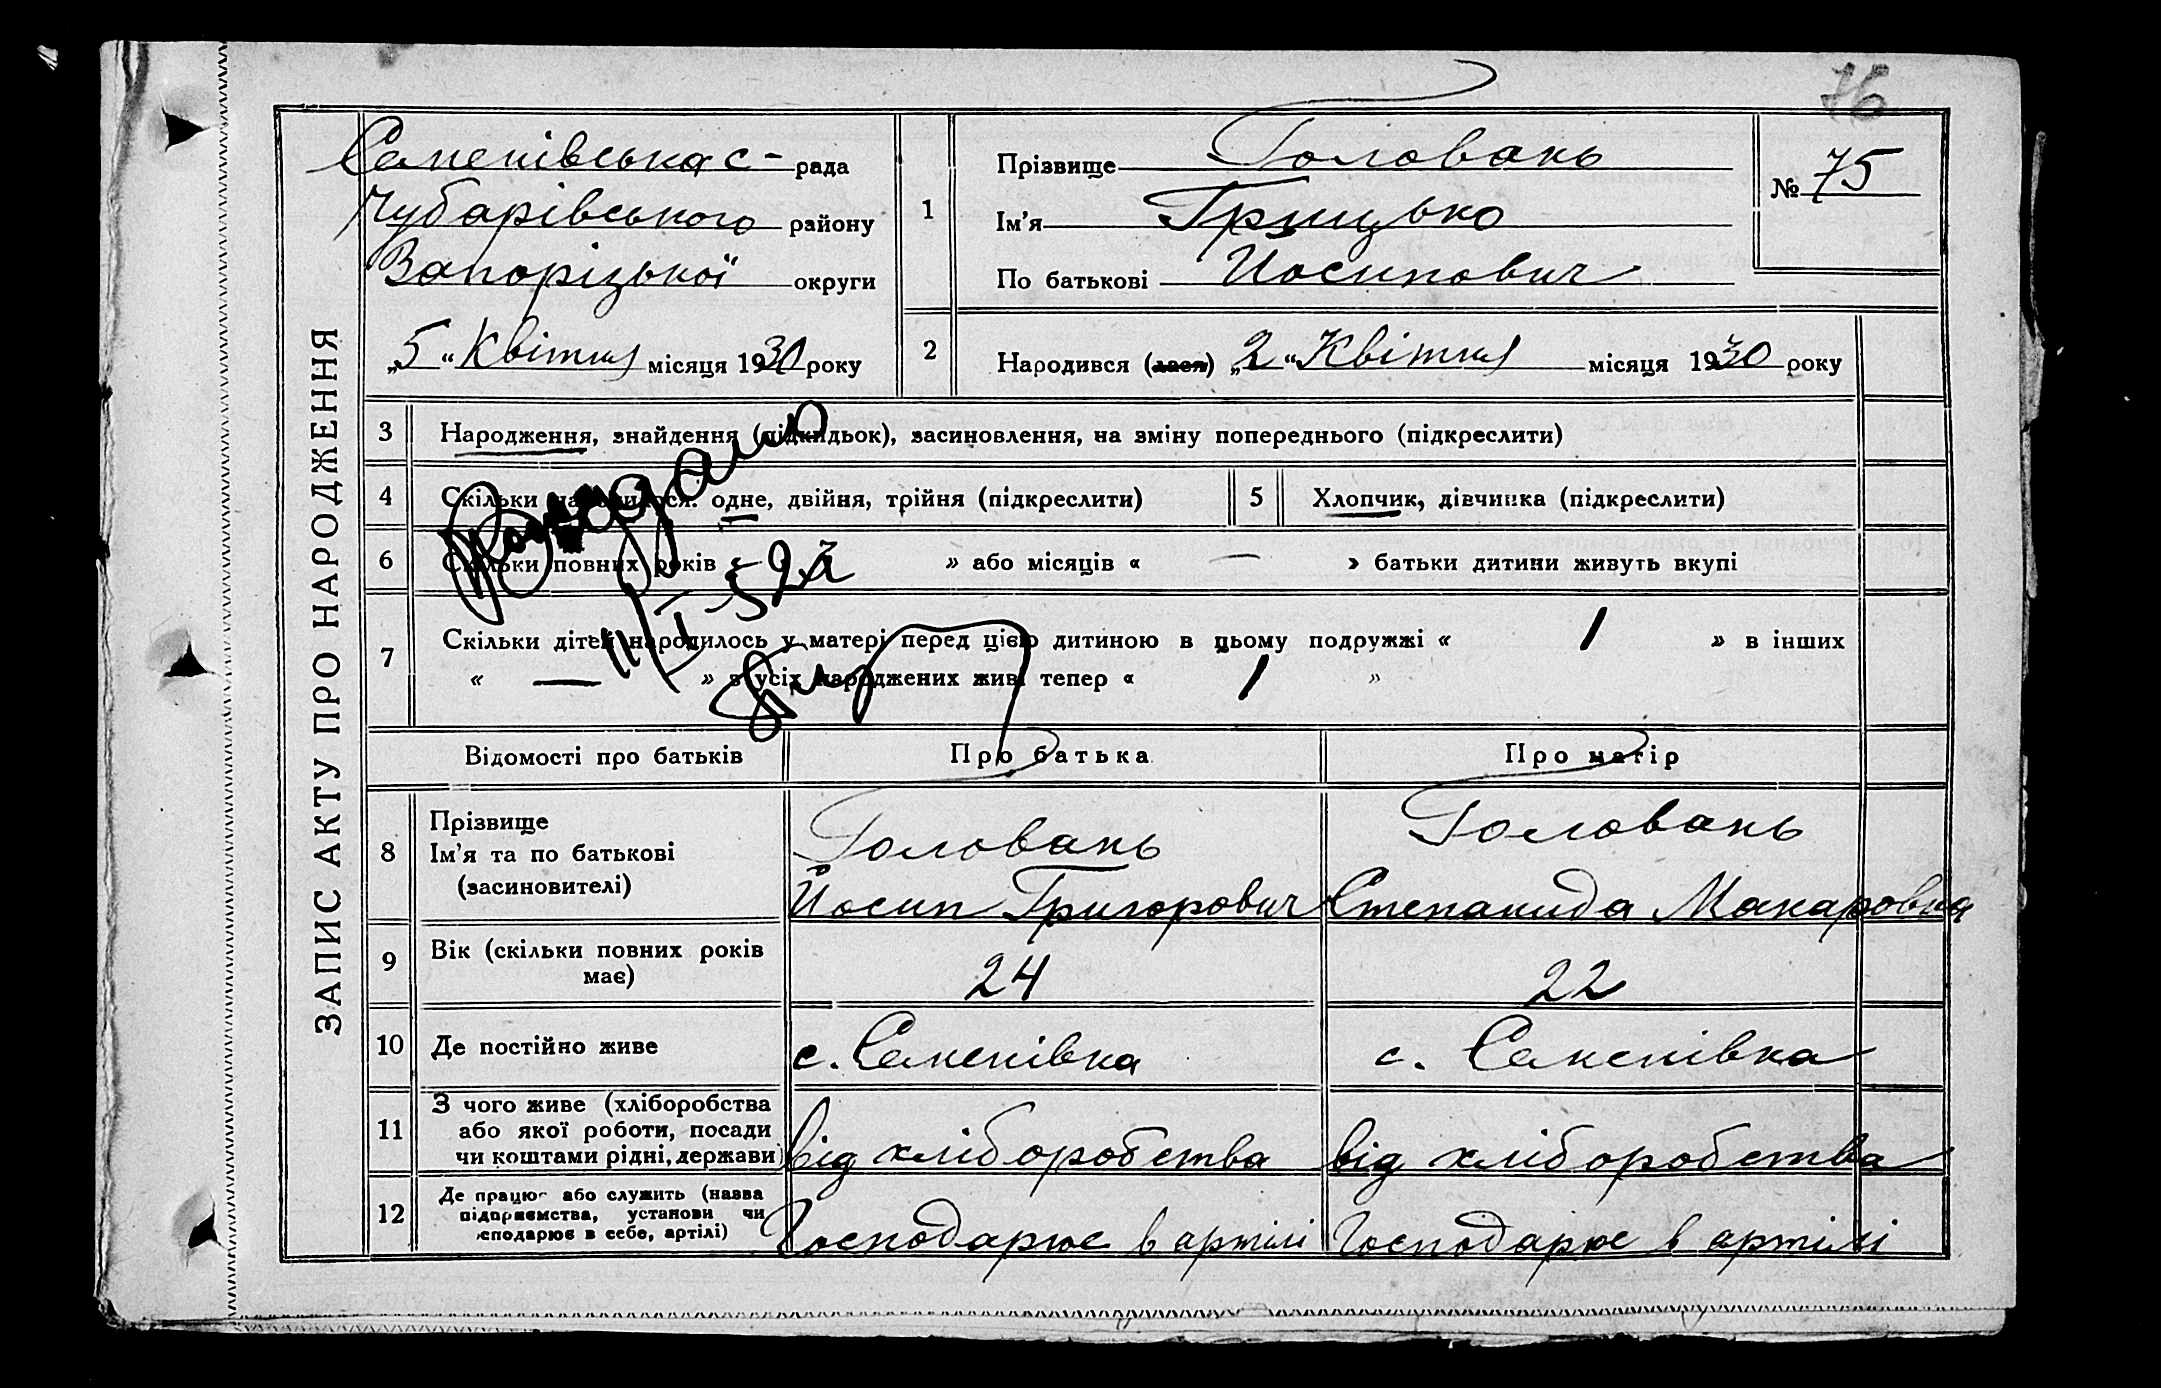 76
ЗАПИС АКТУ ПРО НАРОДЖЕННЯ
Семенівська с- рада
Чубарівського району
Запорізької округи
„5“ Квітня місяця 1930 року
1
Прізвище Головань
Ім'я Грицько
По батькові Йосипович
№ 75
2
Народився (лася) „2“ Квітня місяця 1930 року
3 Народження, знайдення (підкидьок), засиновлення, на зміну попереднього (підкреслити)
4 Скільки народилося: одне, двійня, трійня (підкреслити)
5 Хлопчик, дівчинка (підкреслити)
6 Скільки повних років « » або місяців « — » батьки дитини живуть вкупі
11/I-52
7 Скільки дітей народилось у матері перед цією дитиною в цьому подружжі « 1 » в інших
« — » з усіх народжених живі тепер « 1 »
Відомості про батьків Про батька Про матір
8 Прізвище
Ім'я та по батькові
(засиновителі)
Головань
Йосип Григорович
Головань
Степанида Макаровна
9 Вік (скільки повних років
має)
24 22
10 Де постійно живе с. Семенівка с. Семенівка
11 З чого живе (хліборобства
або якої роботи, посади
чи коштами рідні, держави)
від хліборобства від хліборобства
12 Де працює або служить (назва
підприємства, установи чи
господарює в себе, артілі)
Господарює в артілі Господарює в артілі